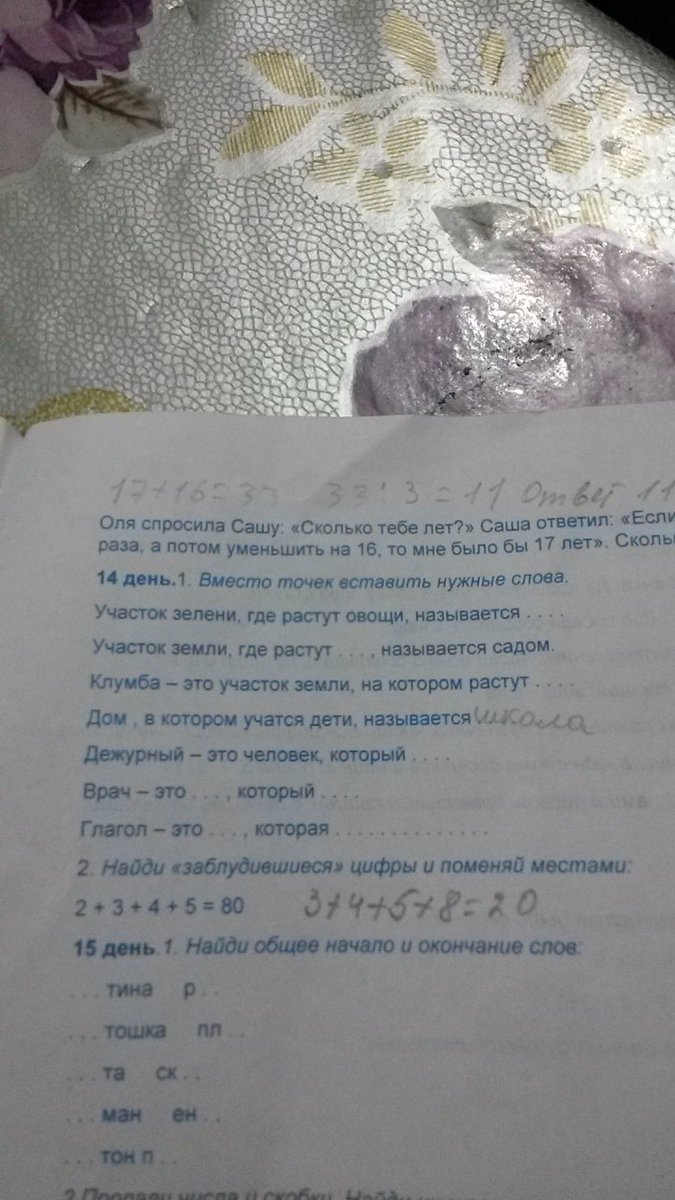 17+16=33 33:3=11 Ответ 11
Оля спросила Сашу: «Сколько тебе лет?» Саша ответил: «Если
раза, а потом уменьшить на 16, то мне было бы 17 лет». Сколь
14 день.1. Вместо точек вставить нужные слова.
Участок зелени, где растут овощи, называется . . . .
Участок земли, где растут . . . , называется садом.
Клумба – это участок земли, на котором растут . . . .
Дом , в котором учатся дети, называется школа
Дежурный – это человек, который . . . .
Врач – это . . . , который . . . .
Глагол – это . . . , которая . . . . . . . . . . . . . .
2. Найди «заблудившиеся» цифры и поменяй местами:
2 + 3 + 4 + 5 = 80 3+4+5+8=20
15 день.1. Найди общее начало и окончание слов:
. . . тина р . .
. . . тошка пл . .
. . . та ск . .
. . . ман ен . .
. . . тон п . .
2 числа и скобки.